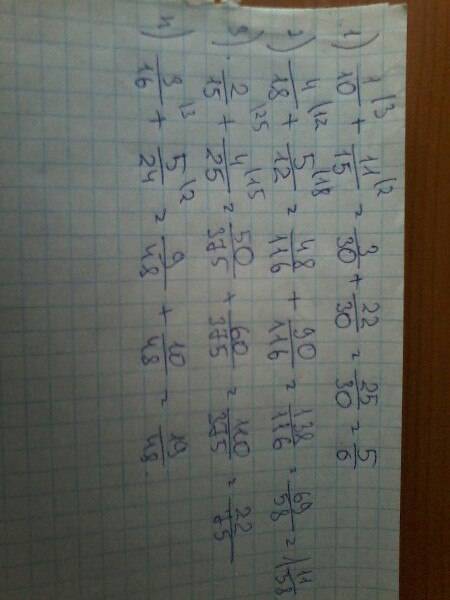 1) 1/10 \3 + 11/15 \2 = 3/30 + 22/30 = 25/30 = 5/6
2) 4/18 \12 + 5/12 \18 = 48/116 + 90/116 = 138/116 = 69/58 = 1 11/58
3) 2/15 \25 + 4/25 \15 = 50/375 + 60/375 = 110/375 = 22/75
4) 3/16 \3 + 5/24 \2 = 9/48 + 10/48 = 19/48